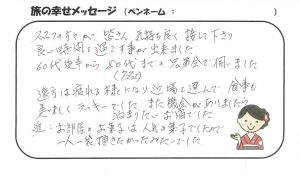 旅の幸せメッセージ (ペンネーム : )
スタッフの方々が 皆さん 気持ち良く 接して下さり
良い時間を過ごす事が出来ました
60代後半から 80代までの 兄弟会で伺いました
遠方は疲れる様になり 近場を選んで 食事も
美味しく ラッキーでした。また機会がありましたら
泊まりたいお宿でした。
追:お部屋のお菓子は 人気の菓子でしたので
一人一袋頂きたかったみたいでした